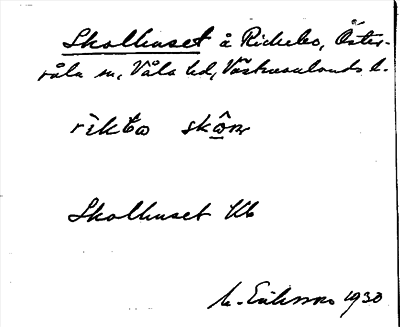 Skolhuset å Rickebo, Öster-
våla sn, Våla hd, Västmanlands l.
rìkba skô̠n
Skolhuset Ub
M. Eriksson 1930